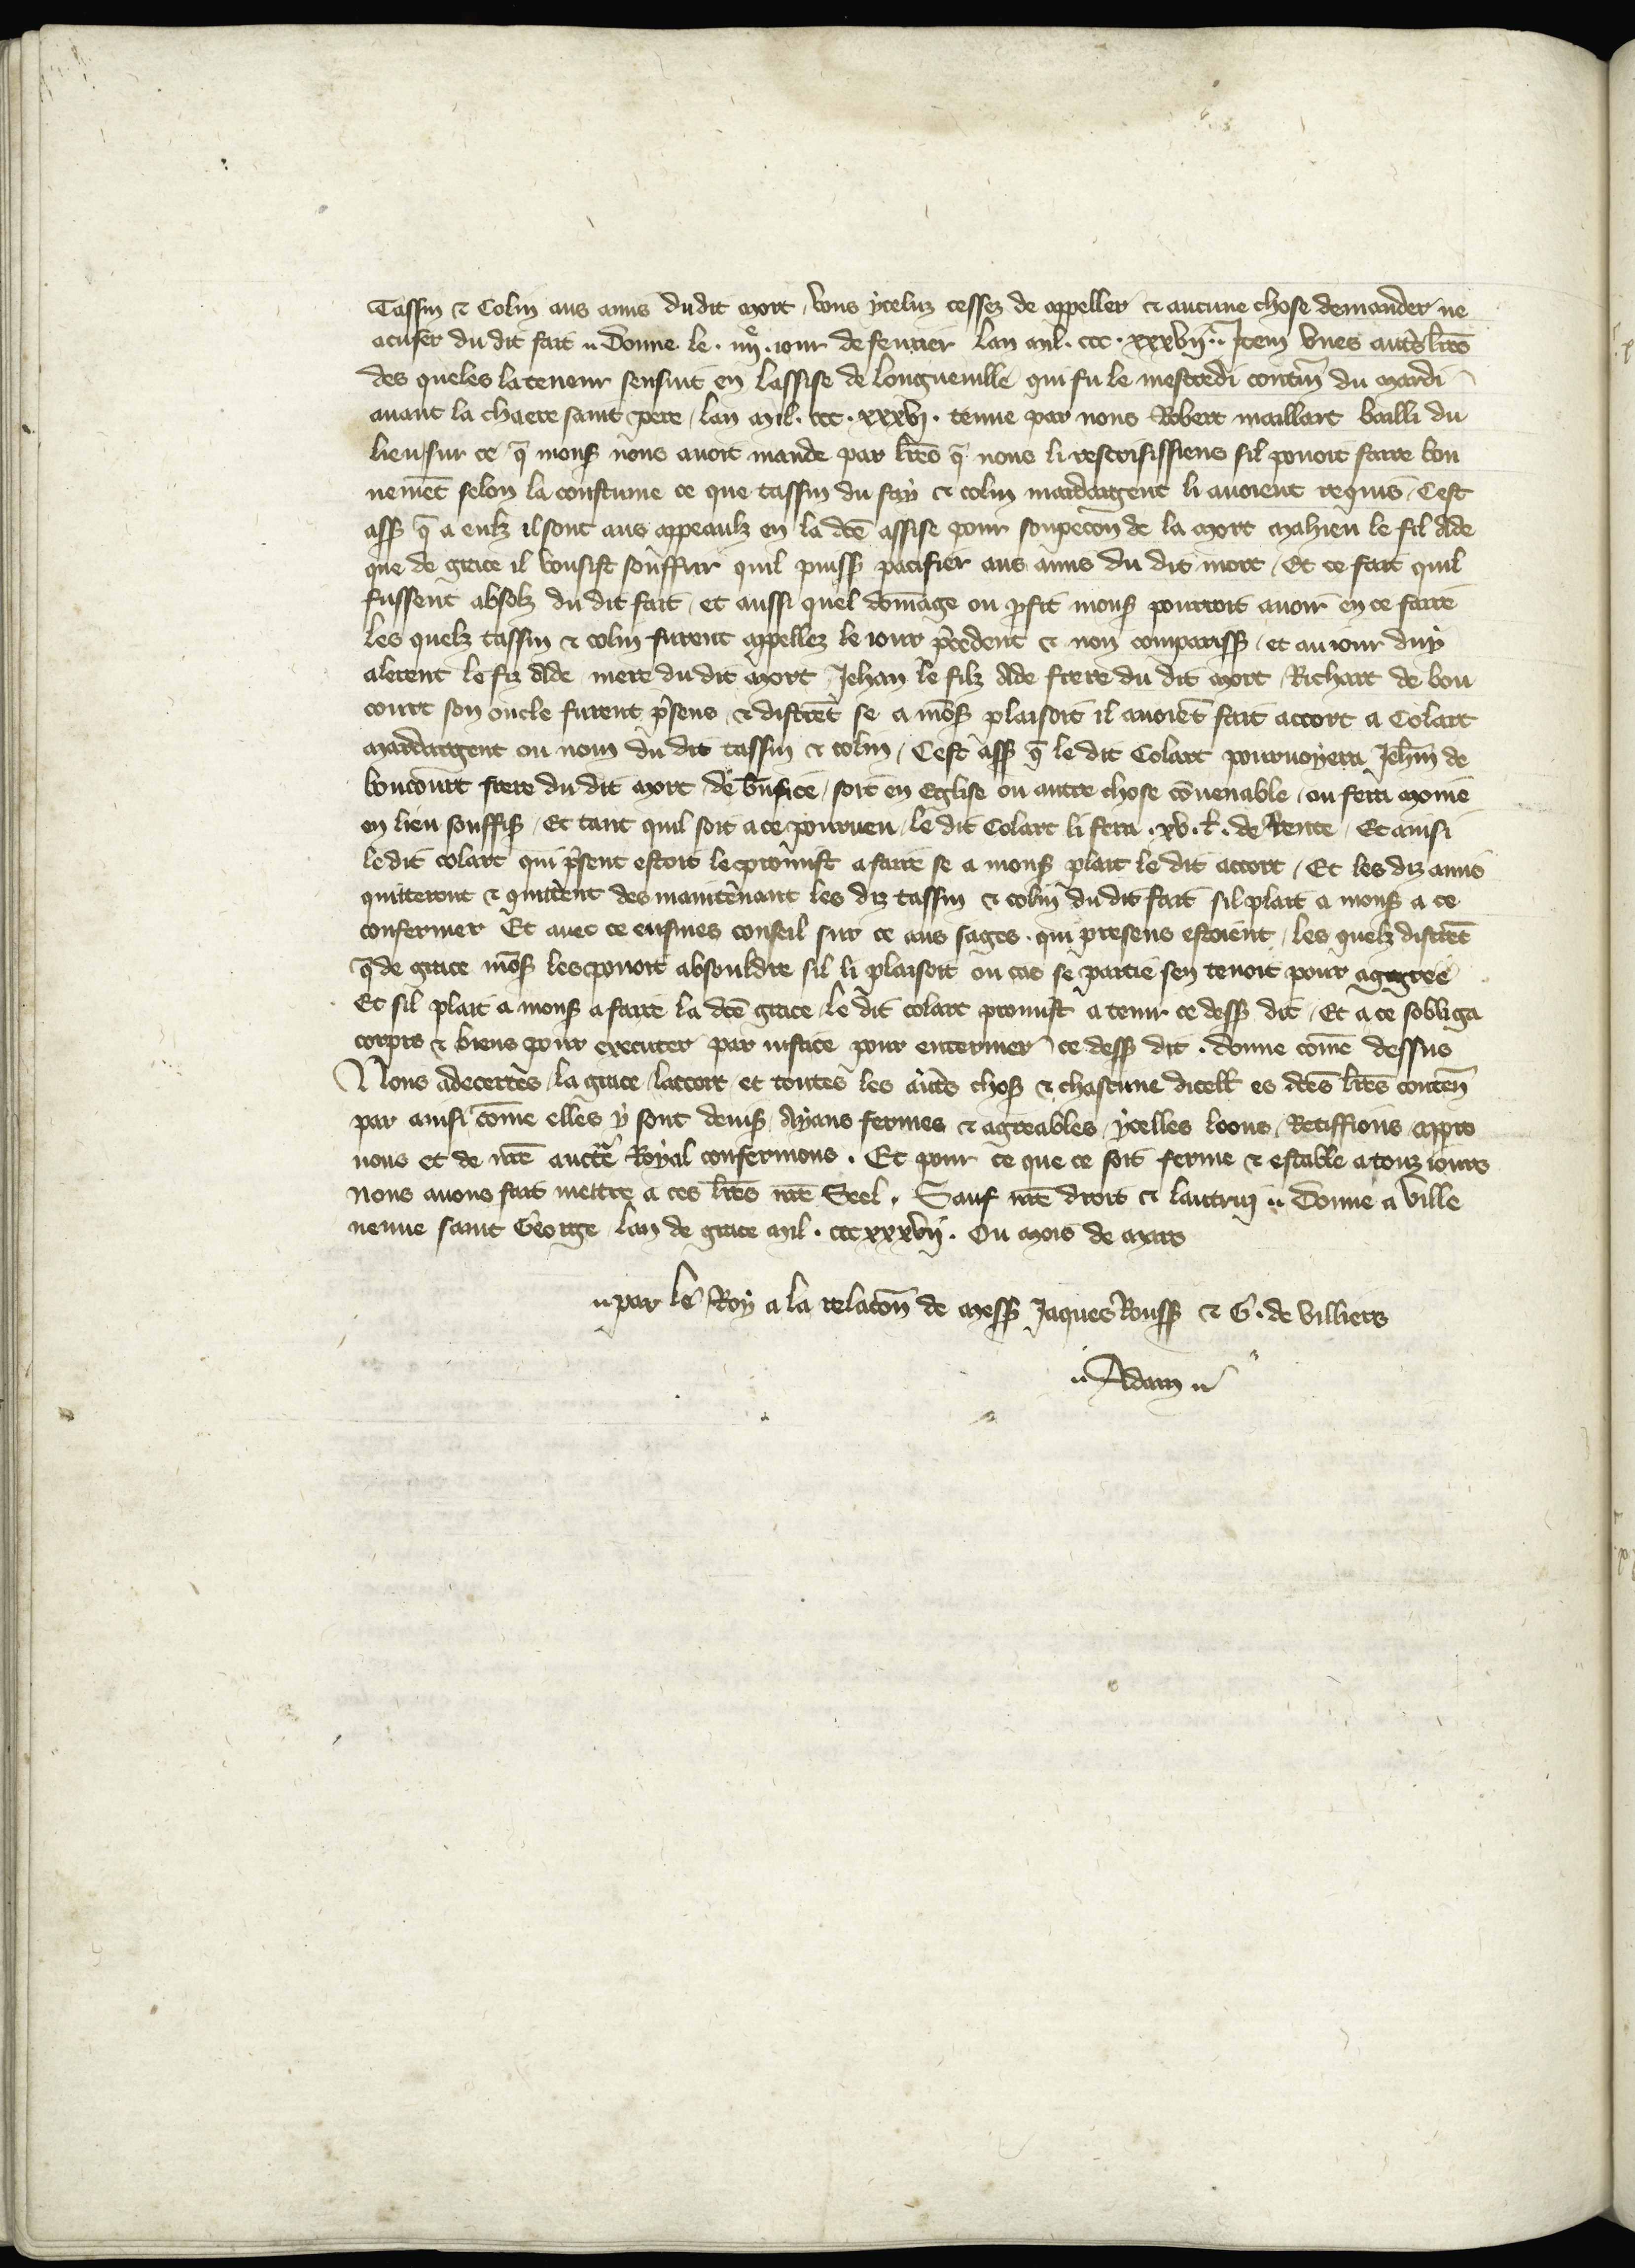 Tassin & Colin aus amis du dit mort, vous yceluz cessez de appeller & aucune chose demander ne
acuser du dit fait. Donne le. iiije. iour de feurier lan mil. ccc. xxxvij. Item vnes autres lres
des queles la teneur sensuit en lassise de longueuille qui fu le mescredi contin du mardi
auant la chaere saint pere, lan mil. ccc. xxxvj. tenue par nous Robert maillart bailli du
lieu, sur ce q̄ mons nous auoit mande par lres q̄ nous li rescrisissiens sil pouoit faire bon
nemēt selon la coustume ce que tassin du fay & colin mardargent li auoient requis, Cest
ass q̄ a eulz il sont aus appeaulz en la dce assise pour soupecon de la mort mahieu le fil Ade
que de grace il vousist souffrir quil puiss pacifier aus amis du dit mort, Et ce fait quil
fussent absolz du dit fait, et aussi quel domage ou profit mons pourroit auoir en ce faire
les quelz tassin & colin furent appellez le iour precedent & non compariss, et au iour duy
alerent le fiz Ade mere du dit mort Jehan le filz Ade frere du dit mort, Richart de bou
court son oncle furent presens, & distrēt se a mōs plaisoit il auoiēt fait accort a Colart
mardargent ou nom du dit tassin & colin, Cest ass q̄ le dit Colart pouruoyera Jehin de
boucourt frere du dit mort de benfice, soit en Eglise ou autre chose cōuenable, ou fera moine
en lieu souffis, Et tant quil soit a ce pourueu, le dit Colart li fera. xv. l. de Rente, Et ainsi
le dit colart qui present estoit le promist a faire se a mons plait le dit accort, Et les diz amis
quitteront & quittent des maintenant les diz tassin & colin du dit fait sil plait a mons a ce
confermer Et auec ce eusmes conseil sur ce aus sages. qui presens estoient, les quelz distrēt
q̄ de grace mōs les pouoit absouldre sil li plaisoit ou cas se partie sen tenoit pour agree
Et sil plait a mons a faire la dce grace, le dit colart promist a tenir ce dess dit, Et a ce sobliga
corps & biens pour executer par iustice pour enteriner ce dess dit. donne come dessus
Nous adecertes, la grace, laccort, et toutes les autres chos & chascune dicell es dces lres conten
par ainsi come elles y sont deuis Ayans fermes & agreables, ycelles loons, Retiffions, appro
uons et de nre auctte Royal confermons. Et pour ce que ce soit ferme & estable a touz iours
Nous auons fait mettre a ces lres nre Seel, Sauf nre droit & lautruj. Donne a ville
neuue saint George lan de grace mil. ccc xxxvij. Ou mois de mars
par le Roy a la relacon de mess Jaques Rouss & G. de villiers
Adam